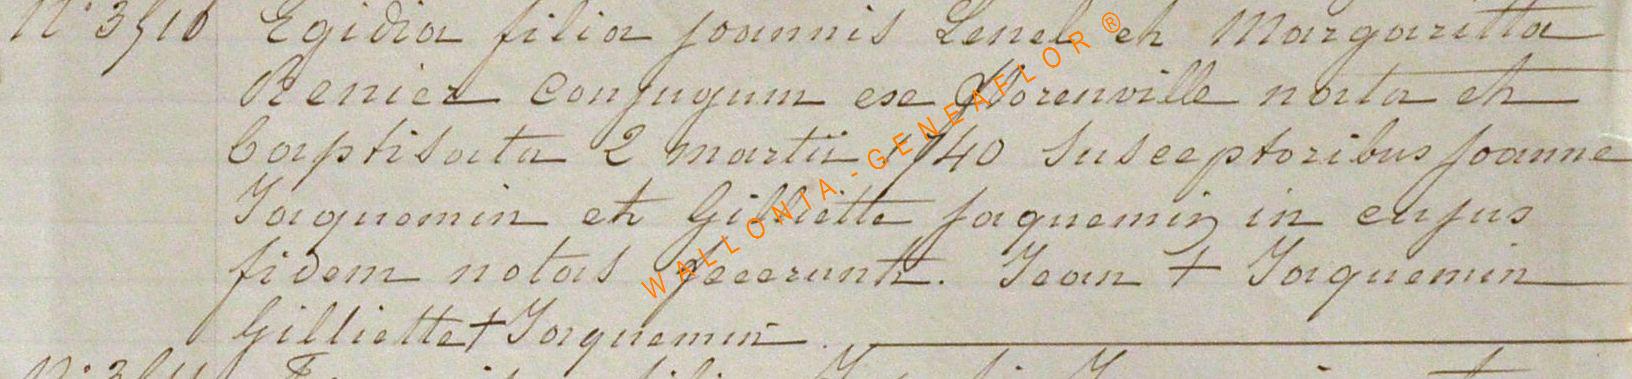 Nº 3510 Egidia filia joannis Lenel et Margaritta
Renier conjugum ex Morenville nata et
baptisata 2 martii 1740 susceptoribus joanne
Jaquemin et Gilliette jaquemin in cujus
fidem notas fecerunt. Jean + Jaquemin
Gilliette + Jaquemin.
WALLONIA-GENEAFLOR®